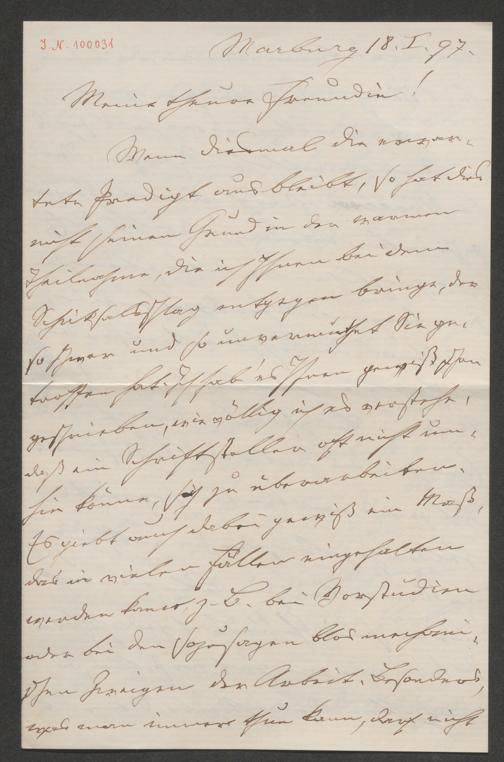 J.N. 100031
Marburg 18. I. 97.
Meine theure Freundin!
Wenn diesmal die erwar-
tete Predigt aus bleibt, so hat dies
nicht seinen Grund in der warmen
Theilnahme, die ich Ihnen bei dem
Schicksalsschlag entgegen bringe, der
so schwer und so unvermuthet Sie ge-
troffen hat. Ich hab' es Ihnen gewiß schon
geschrieben, wie völlig ich es verstehe,
daß ein Schriftsteller oft nicht um-
hin könne, sich zu überarbeiten.
Es giebt auch dabei gewiß ein Maß,
das in vielen Fällen eingehalten
werden kann, z. B. bei Vorstudien
oder bei den sozusagen blos mechani-
schen Zweigen der Arbeit. Besonders,
was man immer thun kann, darf nicht